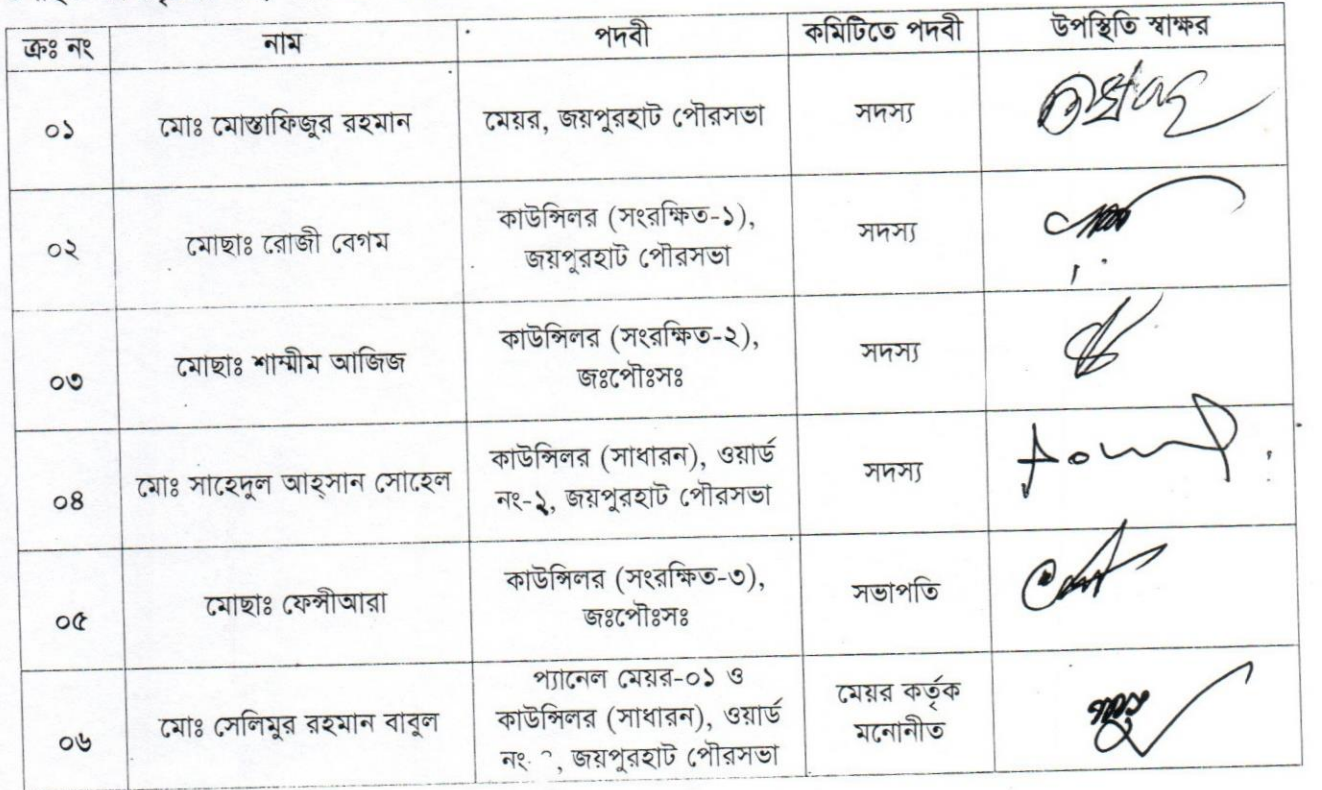 ক্রঃ নং নাম পদবী কমিটিতে পদবী উপস্থিতি স্বাক্ষর
০১ মোঃ মোস্তাফিজুর রহমান মেয়র, জয়পুরহাট পৌরসভা সদস্য
০২ মোছাঃ রোজী বেগম কাউন্সিলর (সংরক্ষিত-১), সদস্য
জয়পুরহাট পৌরসভা
০৩ মোছাঃ শাম্মীম আজিজ কাউন্সিলর (সংরক্ষিত-২), সদস্য
জঃপৌঃসঃ
০৪ মোঃ সাহেদুল আহ্সান সোহেল কাউন্সিলর (সাধারন), ওয়ার্ড সদস্য
নং-২, জয়পুরহাট পৌরসভা
০৫ মোছাঃ ফেন্সীআরা কাউন্সিলর (সংরক্ষিত-৩), সভাপতি
জঃপৌঃসঃ
০৬ মোঃ সেলিমুর রহমান বাবুল প্যানেল মেয়র-০১ ও মেয়র কর্তৃক
কাউন্সিলর (সাধারন), ওয়ার্ড মনোনীত
নং- , জয়পুরহাট পৌরসভা